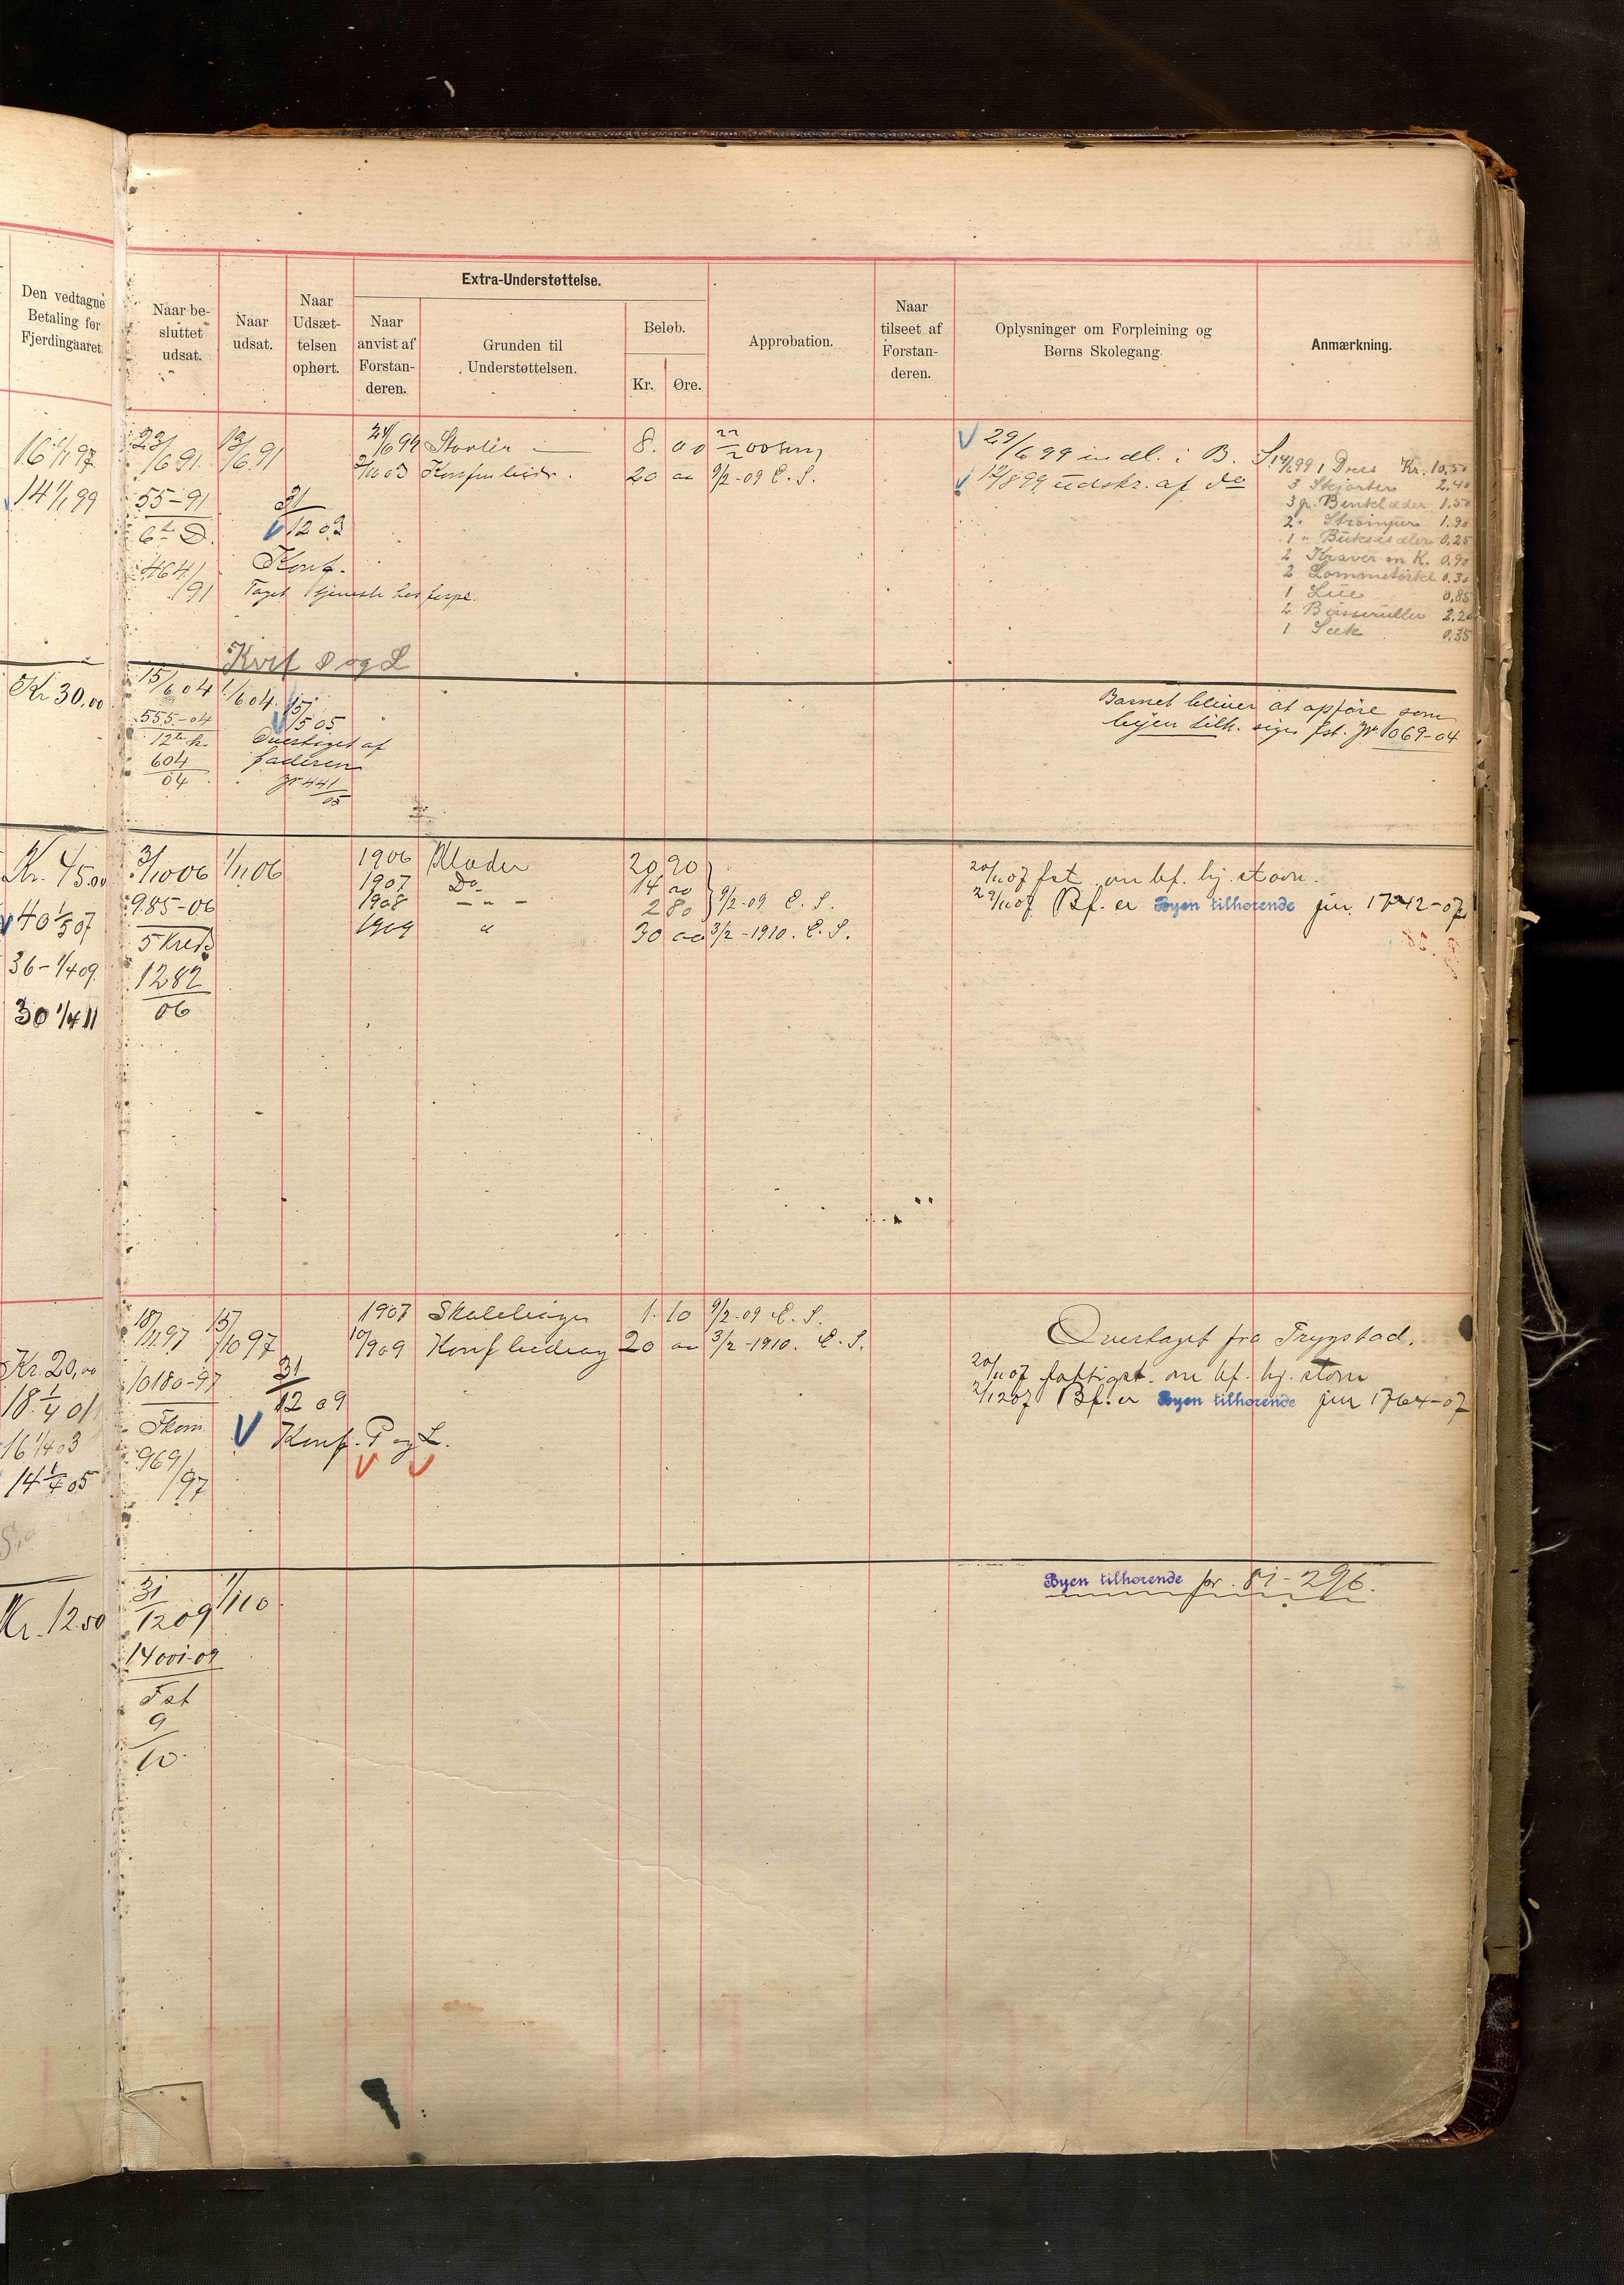 Den vedtagne
Betaling for
Fjerdingaaret.
Naar be-
sluttet
udsat.
Naar
udsat.
Naar
Udsæt-
telsen
ophørt.
Extra-Understøttelse.
Naar
anvist af
Forstan-
deren.
Grunden til
Understøttelsen.
Beløb.
Kr. Øre.
Approbation.
Naar
tilseet af
Forstan-
deren.
Oplysninger om Forpleining og
Børns Skolegang.
Anmærkning.
16 1/1 97
14 1/1 99
23/6 91.
55-91
6te D.
464/91
13/6.91
31/12 03
Konf.
Taget tjeneste hos forpl.
24/6 99 Støvler 8. 00
2/10 03 20 00 9/2-09 E. S.
29/6 99 indl. i B. S.
12/8 99 udskr. af do
14/6 99 1 Dres Kr. 10,50
3 Skjorter 2.40
3 p. Benklæder 1.50
2 " Strømper 1.90
1 " Bukseseler 0,25
2 Kraver m K. 0,90
2 Lommetørkl 0.30
1 Lue 0,85
2 Busseruller 2.20
1 Sæk 0,35
Kvit P og L
Kr 30,00
15/6 04
555-04
12te k.
604/04
1/6 04.
15/5 05
Overtaget af
faderen
Jr 441/05
Barnet bliver at opføre som
byen tilh. sign. fst. Jr 1069-04
Kr. 45.00
40 1/5 07
36- 1/4 09.
30 1/4 11
31/10 06
985-06
5 Kreds
1282/06
1/11 06
1906 Klæder 20 90
1907 Do 14 00
1908 - " - 2 80 9/2-09 E. S.
1909 " 30 00 3/2-1910. E. S.
20/11 07 fst. om bf. hj. stavn.
29/11 07 Bf. er Byen tilhørende jnr. 1742-07
Kr. 20,00
18. 1/4 01
16 1/4 03
14 1/4 05
18/11 97
10180-97
Fkom
969/97
15/10 97
31/12 09
Konf. P og L.
1907 Skolebøger 1. 10 9/2-09 E. S.
10/1909 Konf bidrag 20 00 3/2-1910. E. S.
Overtaget fra Trygstad.
20/11 07 fattigst. om bf. hj. stavn
2/12 07 Bf. er Byen tilhørende jnr 1764-07
Kr. 12.50
31/12 09
14001-09
Fst
9/10.
1/1 10.
Byen tilhørende jnr. 81-296.